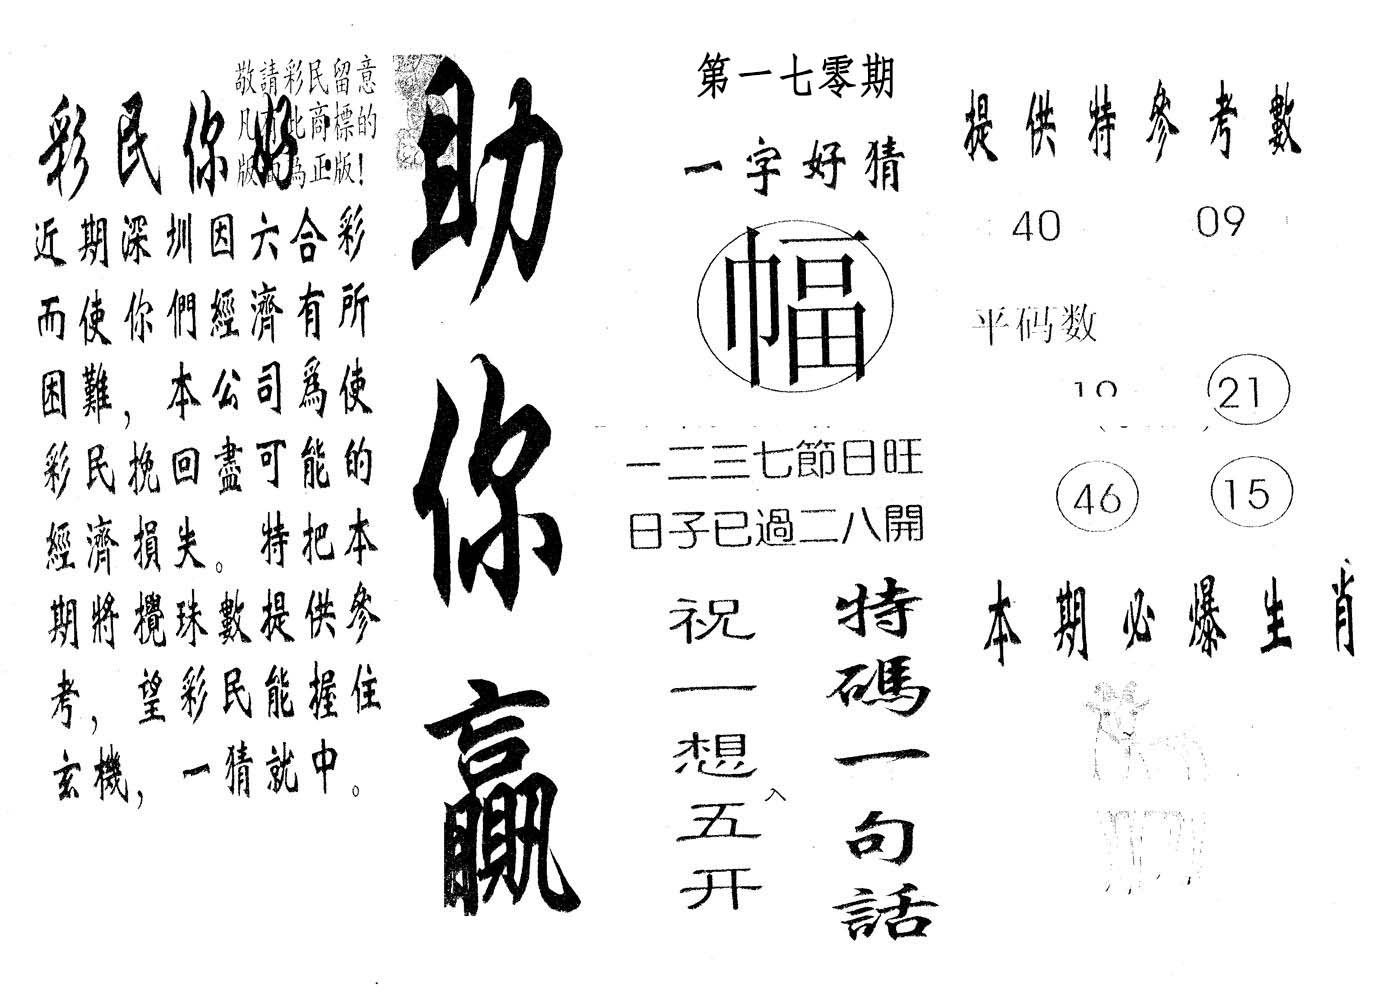 敬請彩民留意
凡 此商標的
版 為正版!
彩民你好
近期深圳因六合彩
而使你們經濟有所
困難，本公司爲使
彩民挽回盡可能的
經濟損失。特把本
期將攪珠數提供參
考，望彩民能握住
玄機，一猜就中。
助你贏
第一七零期
一字好猜
幅
一二三七節日旺
日子已過二八開
特碼一句話
祝一想五开
入
提供特參考數
40 09
平码数
21
46 15
本期必爆生肖